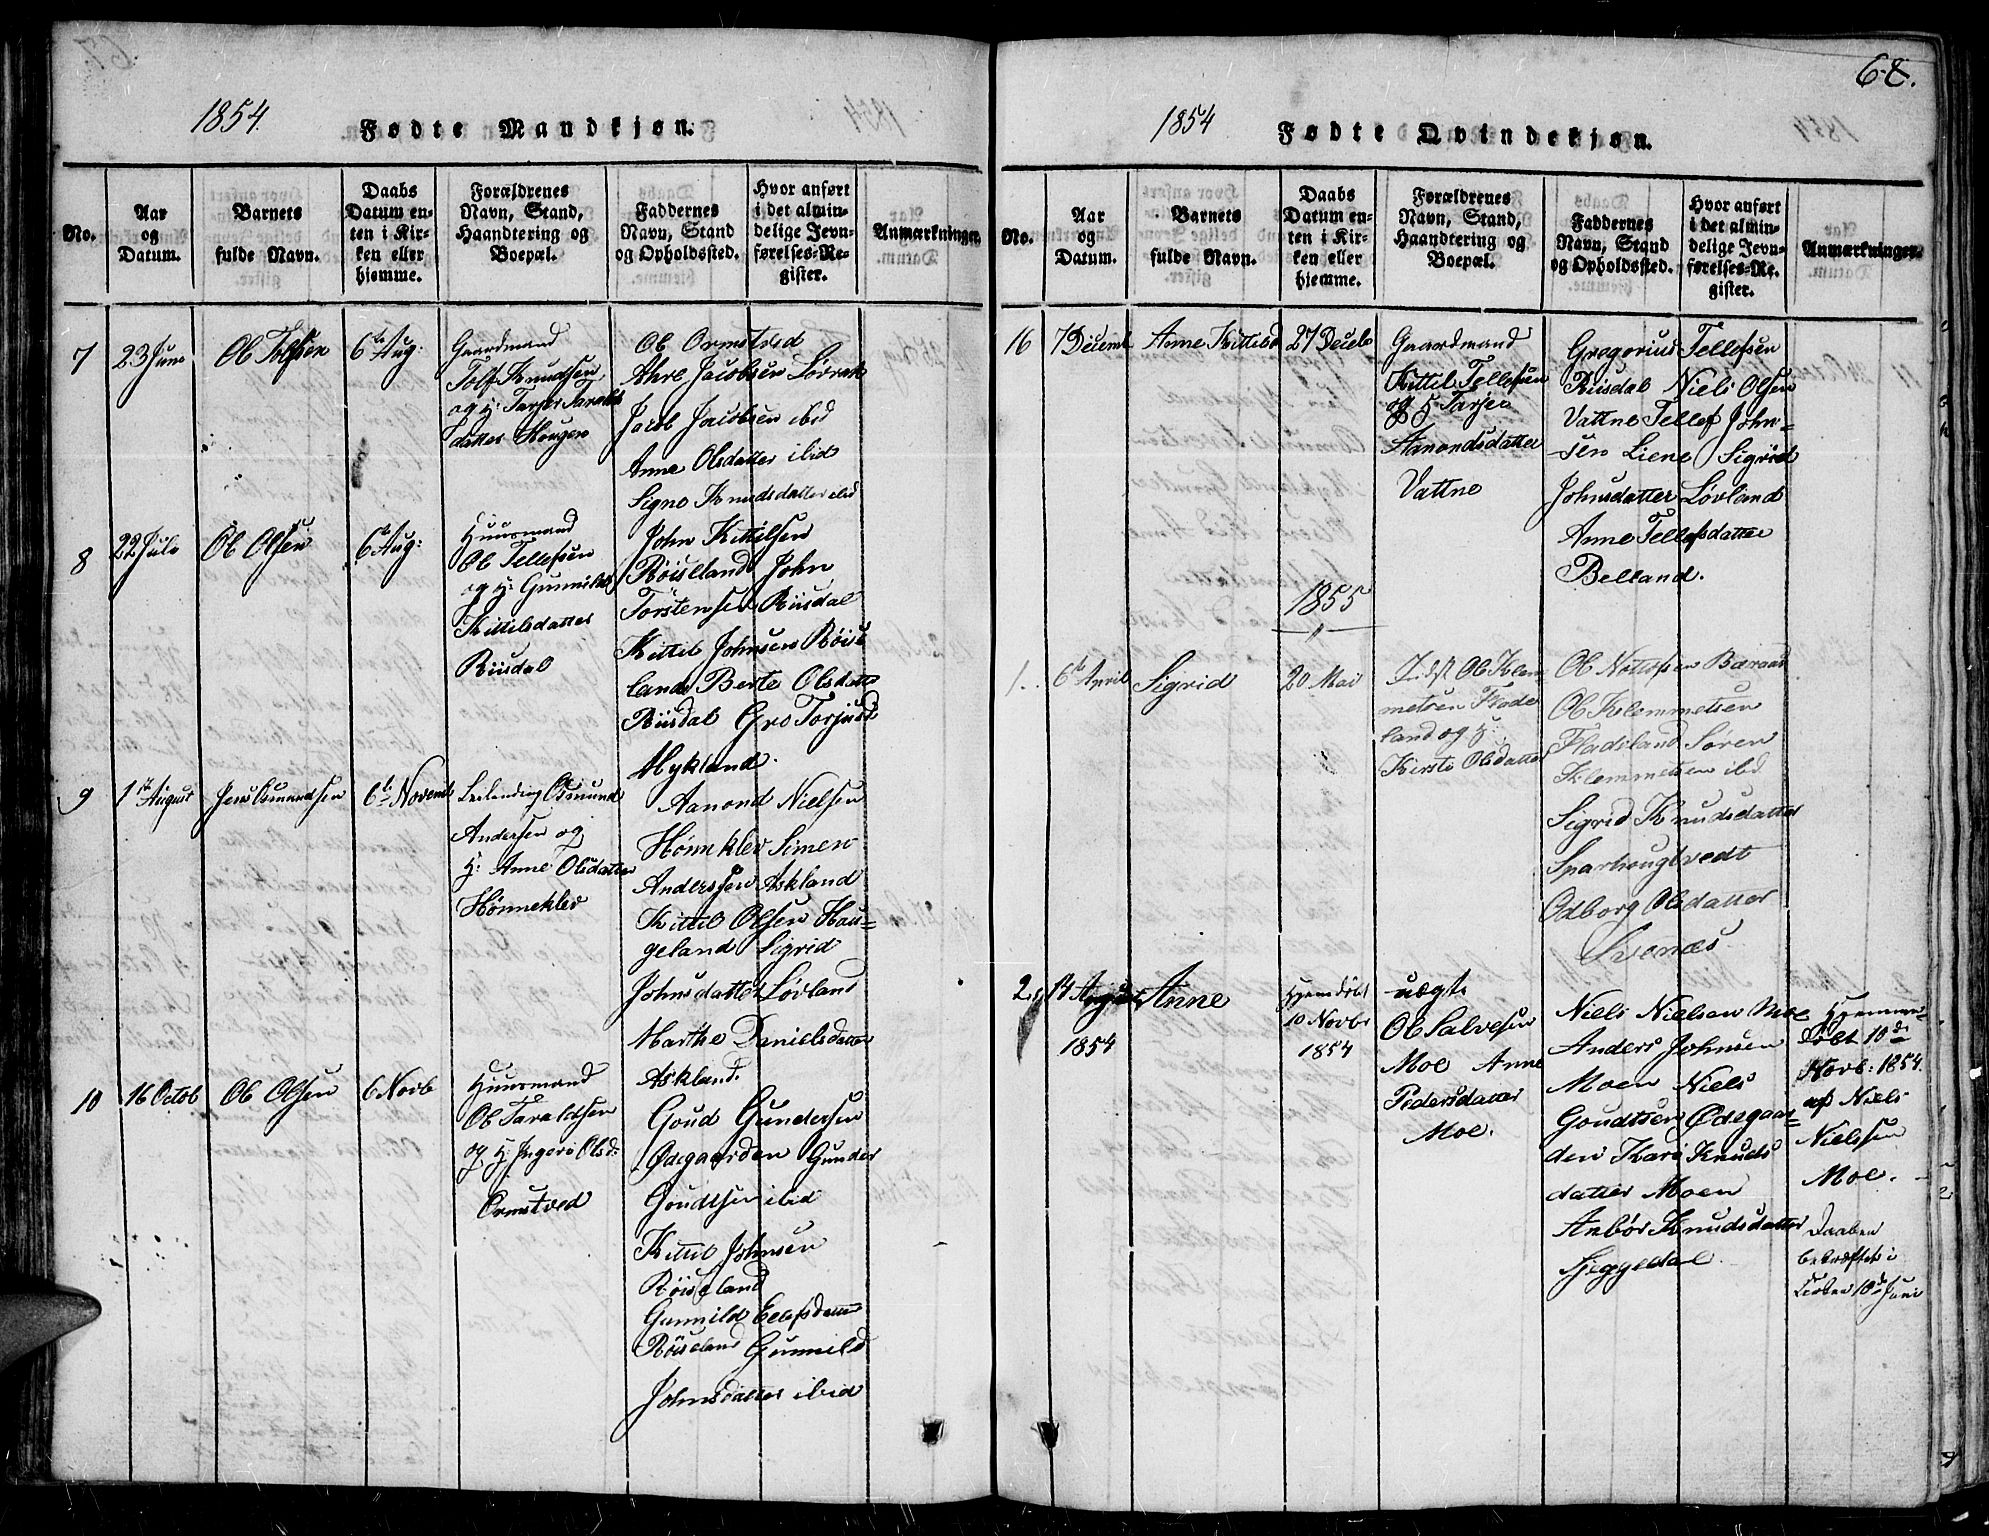 1854.
Fødte Mandkjøn.
No.
Aar
og
Datum.
Barnets
fulde Navn.
Daabs
Datum en-
ten i Kir-
ken eller
hjemme.
Forældrenes
Navn, Stand,
Haandtering og
Boepæl.
Faddernes
Navn, Stand
og Opholdssted.
Hvor anført
i det almin-
delige Jevn-
førelses-Re-
gister.
Anmærkninger.
7
23 Juni
Ole Tolfsen
6te Aug:
Gaardmand
Tolf Knudsen
og H: Tarjer Taralds
datter Hougen
Ole Ormstved
Ahre Jacobsen Lørrak
Jacob Jacobsen ibid
Anne Olsdatter ibid
Signe Knudsdatter ibid
8
22 Juli
Ole Olsen
6te Aug:
Huusmand
Ole Tellefsen
og H: Gunnild
Kittilsdatter
Riisdal
John Kittilsen
Røiseland John
Torstensen Riisdal
Kittil Johnsen Røise
land Berte Olsdatter
Riisdal Gro Torjusd
Mykland.
9
1te August
Jens Osmundsen
6te Novemb
Leilending Osmund
Andersen og
H: Anne Olsdatter
Hønneklev
Aanond Nielsen
Hønneklev Simen
Anderssen Askland
Kittil Olsen Hau-
geland Sigrid
Johnsdatter Løvland
Marthe Danielsdatter
Askland.
10
16 Octob
Ole Olsen
6 Novb
Huusmand
Ole Taraldsen
og H: Ingerø Olsd:
Ormstved
Goud Gundersen
Ødegaarden Gunder
Goudtsen ibid
Kittil Johnsen
Røiseland
Gunnild Eelefsdatter
Røiseland Gunnild
Johnsdatter ibid
68.
1854
Fødte Qvindekjøn.
No.
Aar
og
Datum.
Barnets
fulde Navn.
Daabs
Datum en-
ten i Kir-
ken eller
hjemme.
Forældrenes
Navn, Stand,
Haandtering og
Boepæl.
Faddernes
Navn, Stand
og Opholdssted.
Hvor anført
i det almin-
delige Jevn-
førelses-Re-
gister.
Anmærkninger.
16
7 Decemb
Anne Kittilsd
27 Deceb
Gaardmand
Kittil Tellefsen
og H Tarjer
Aanondsdatter
Vattne
Gregorius Tellefsen
Riisdal Niels Olsen
Vattne Tellef John-
sen Liene Sigrid
Johnsdatter Løvland
Anne Tellefsdatter
Belland.
1855
1.
6te April
Sigrid
20 Mai
Ole Klem
metsen Flade
land og H:
Kirsti Olsdatter
Ole Nottofsen Baraas
Ole Klemmetsen
Fladeland Søren
Klemmetsen ibd
Sigrid Knudsdatter
Sparhougtvedt
Odborg Olsdatter
Svenæs
2.
14 August
1854
Anne
Hjemdøbt
10 Novbr
1854
uægte
Ole Salvesen
Moe Anne
Pedersdatter
Moe.
Niels Nielsen Moe
Anders Johnsen
Moen Niels
Goudtsen Ødegaar-
den Kari Knuds
datter Moen
Anbør Knudsdatter
Sjeggedal
Hjemme-
døbt 10de
Novb: 1854.
af Niels
Nielsen
Moe.
Daaben
bekræftet i
Kirken 10de Juni